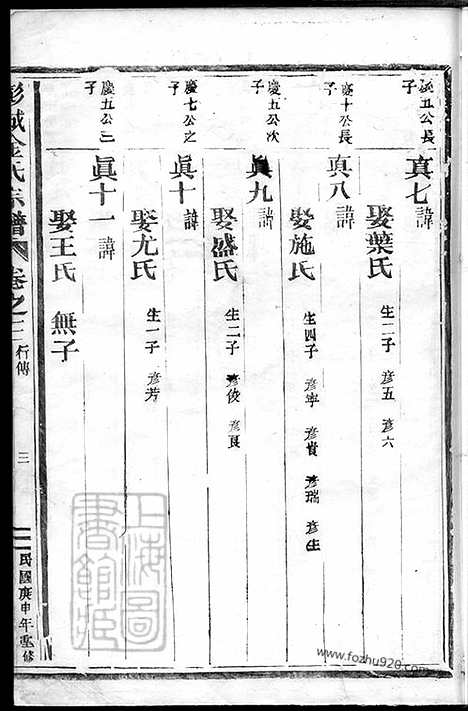 慶五公長子
真七 諱
娶葉氏 生二子 彥五 彥六
慶十公長子
真八 諱
娶施氏 生四子 彥寧 彥貴 彥瑞 彥生
慶五公次子
眞九 諱
娶盛氏 生二子 彥俊 彥良
慶七公之子
眞十 諱
娶尤氏 生一子 彥芳
慶五公三子
眞十一 諱
娶王氏 無子
彭城金氏宗譜 卷之二 行傳 三 民國庚申年重修
上海圖書館藏
www.fozhu920.com